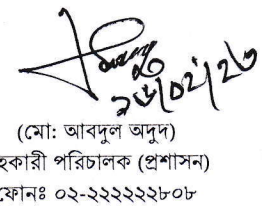 ১৬/০২/২৬
(মো: আবদুল অদুদ)
হকারী পরিচালক (প্রশাসন)
ফোনঃ ০২-২২২২২২৮০৮